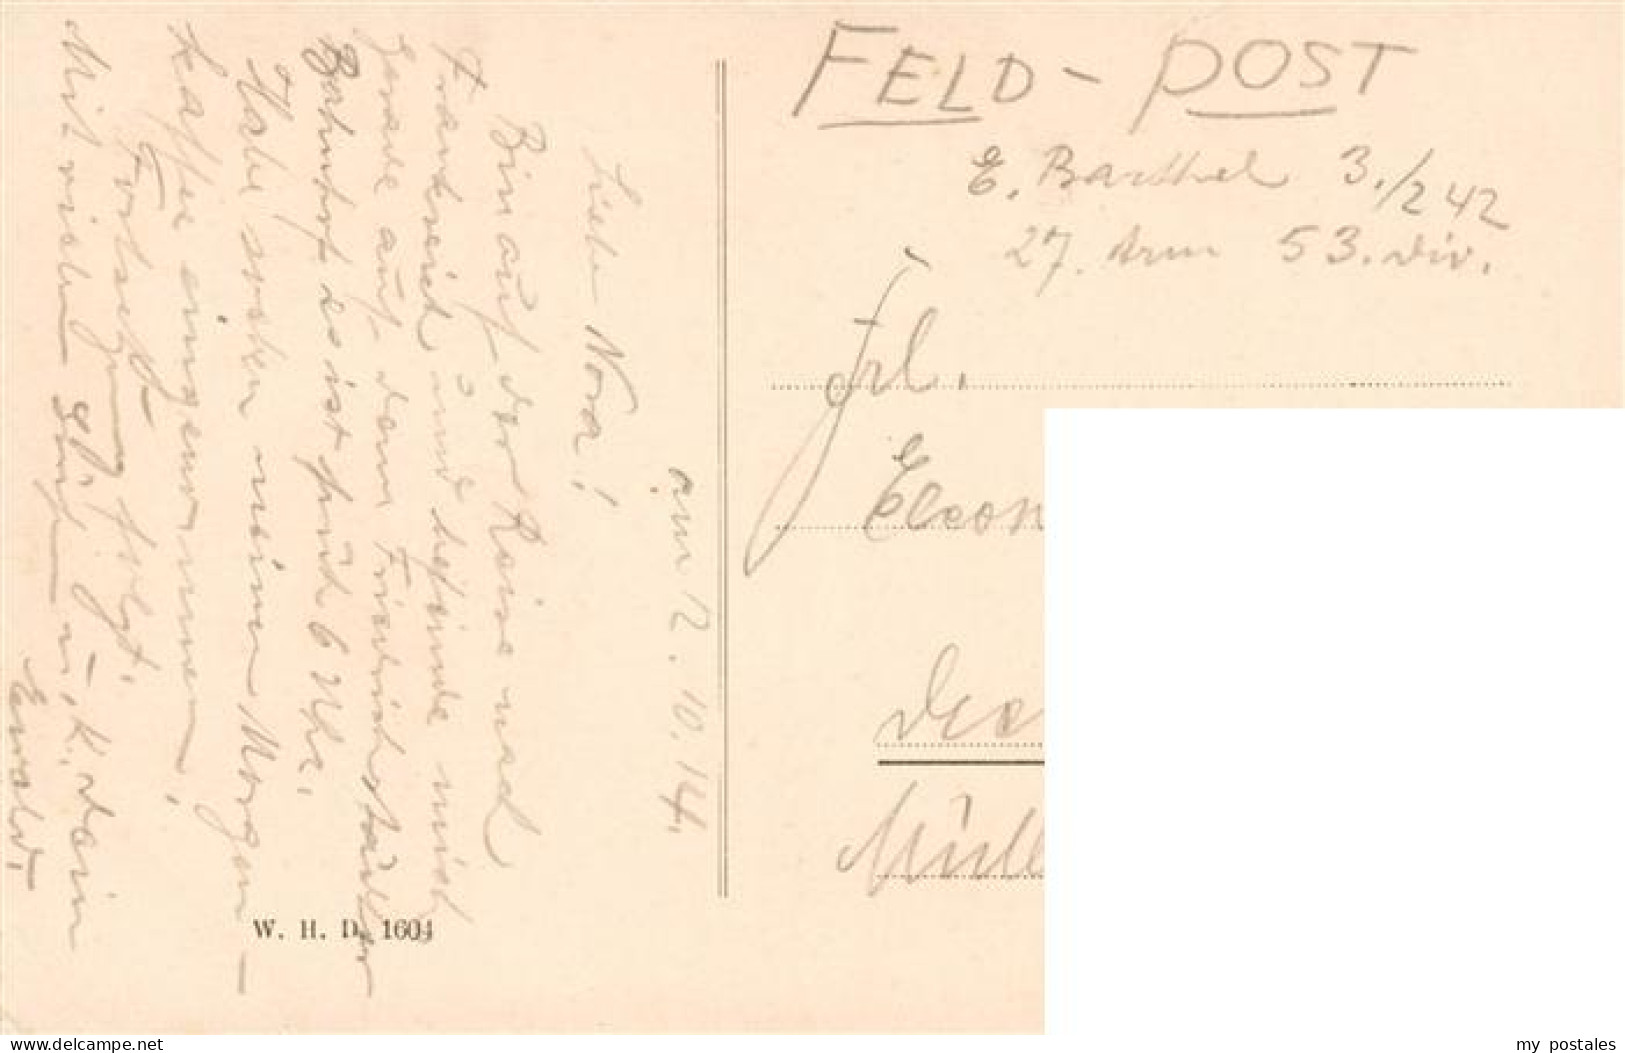 FELD-POST
E. Barthel 3./242
27. Arm 53. Div.
Frl.
Eleon
Müll
am 12.10.14.
Liebe Nora!
Bin auf der Reise nach
Frankreich und befinde mich
gerade auf dem Friedrichstädter
Bahnhof es ist früh 6 Uhr.
Habe soeben meinen Morgen-
kaffee eingenommen.
Fortsetzung folgt.
Mit vielen Gr. u. K. Dein
Ewald.
W. H. D. 1604
www.delcampe.net
my_postales